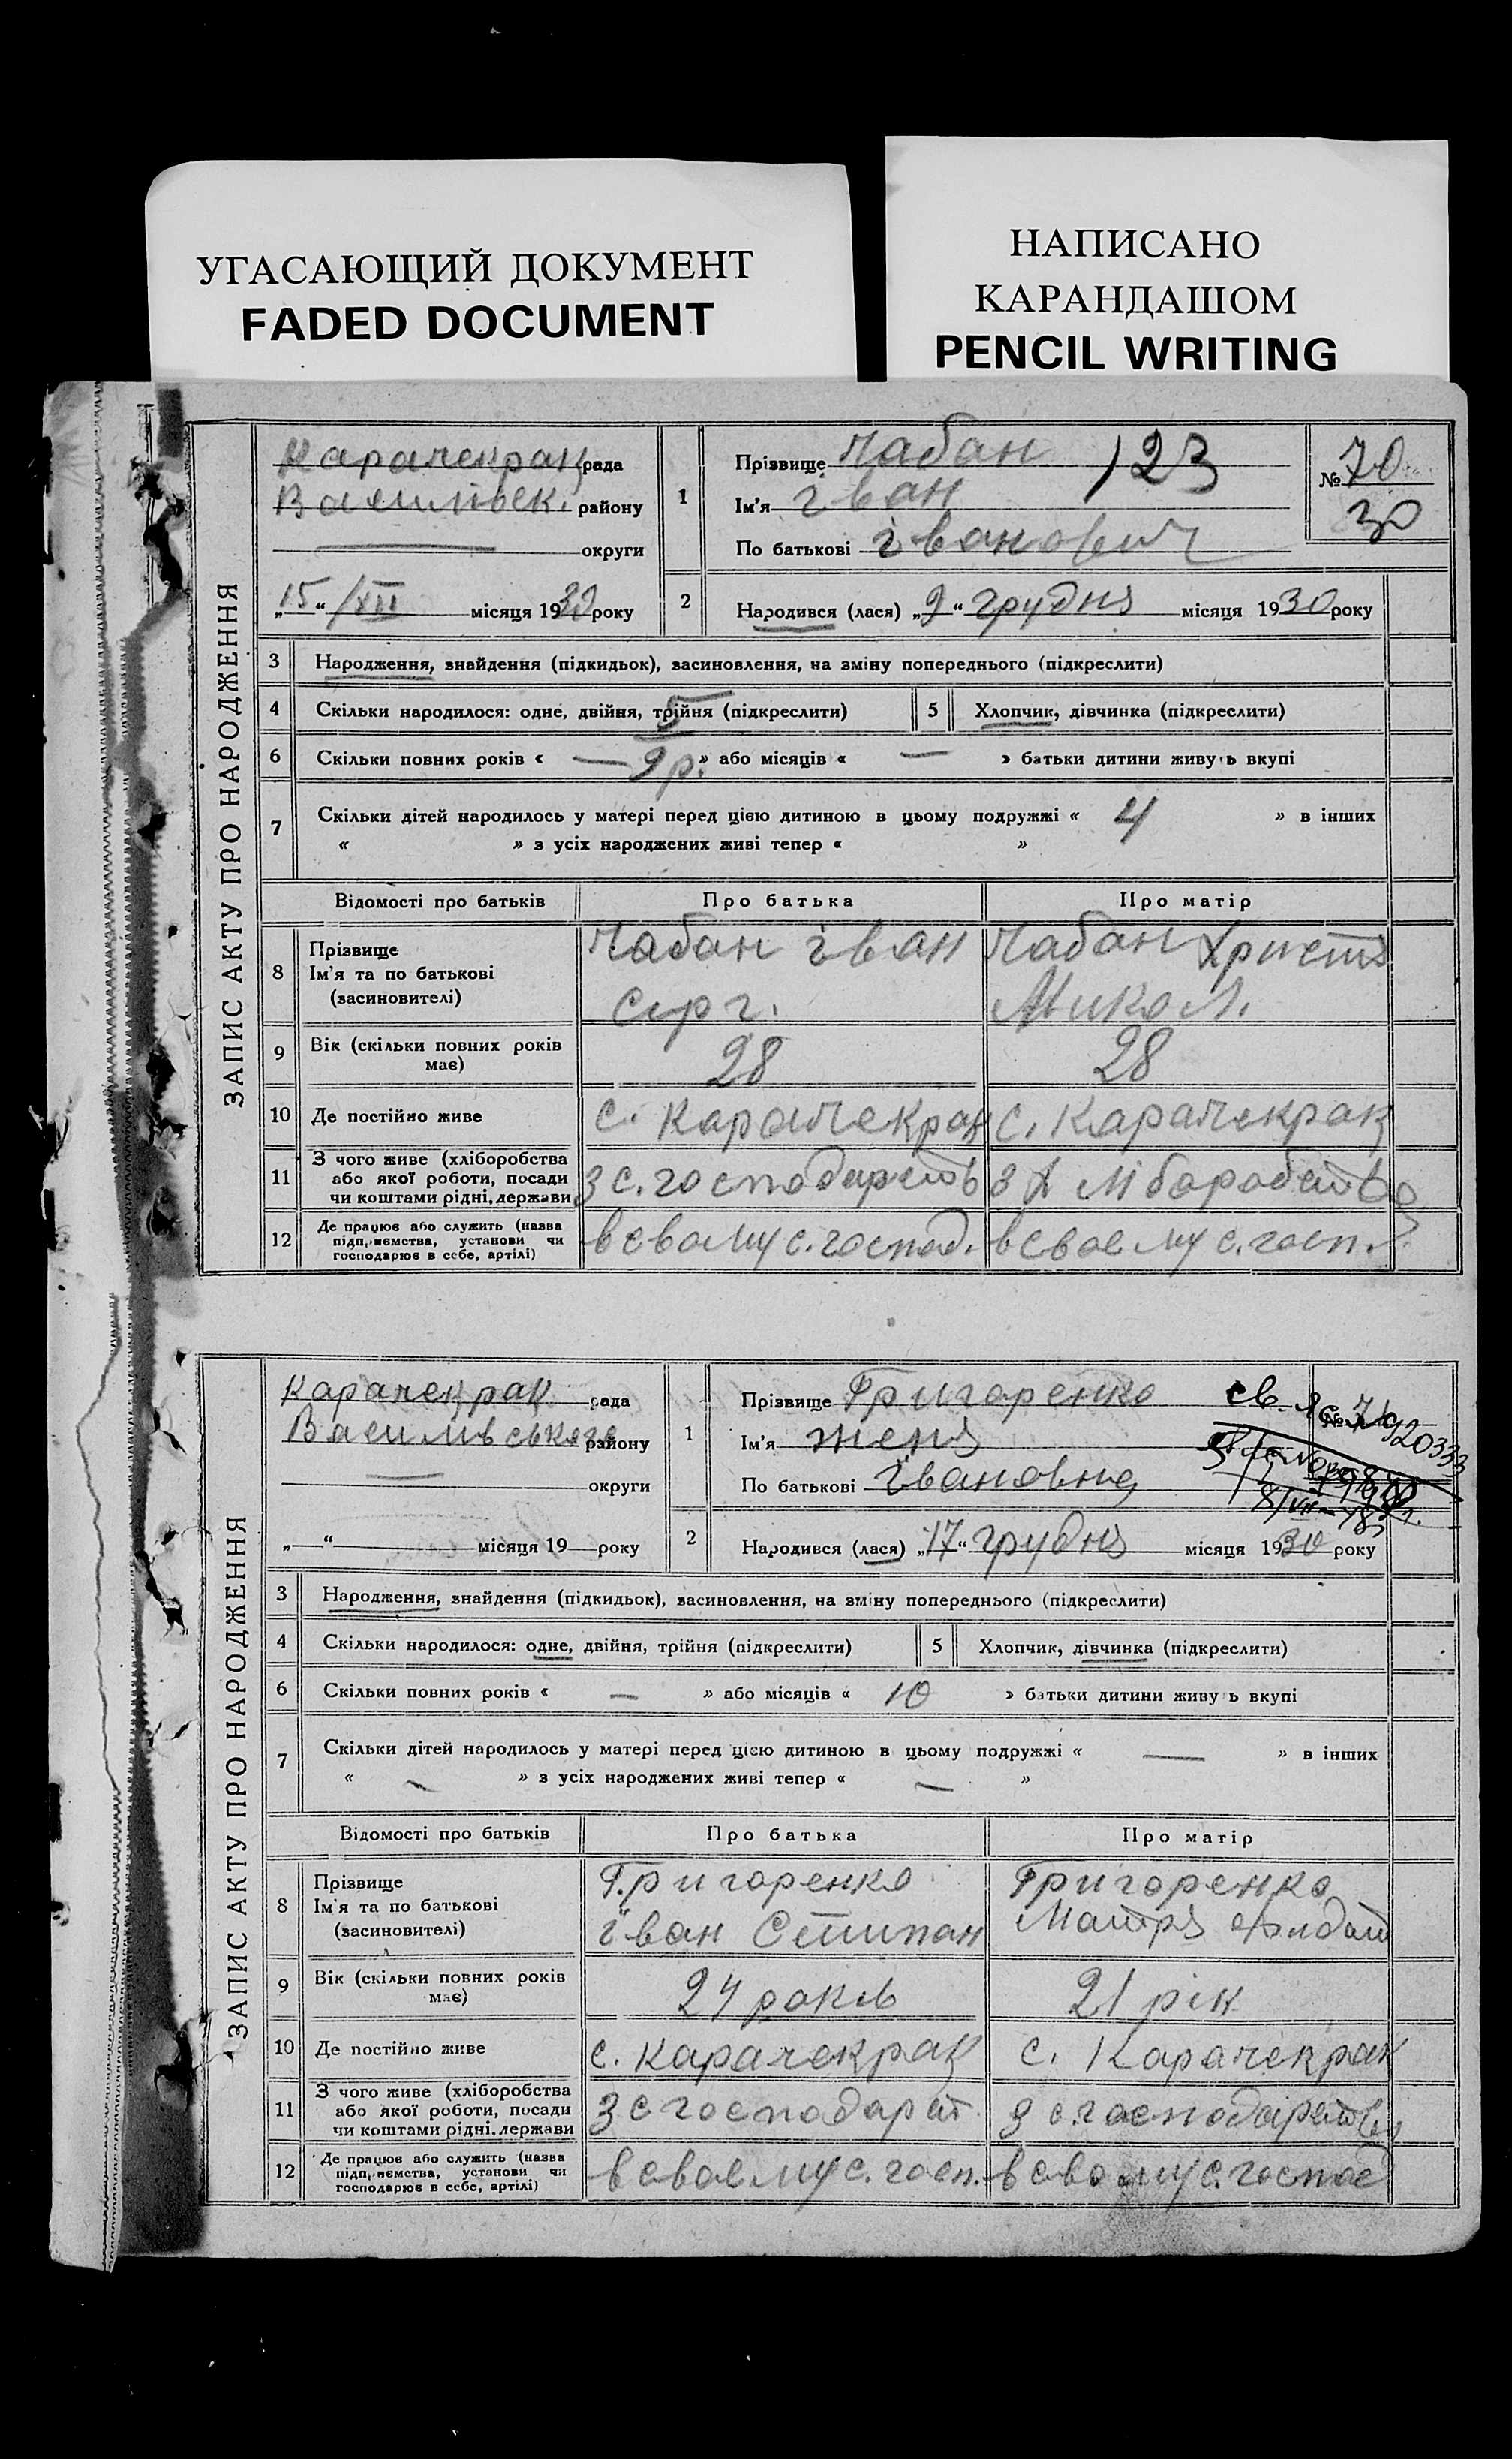 УГАСАЮЩИЙ ДОКУМЕНТ
FADED DOCUMENT
НАПИСАНО
КАРАНДАШОМ
PENCIL WRITING
ЗАПИС АКТУ ПРО НАРОДЖЕННЯ
Карачекрак рада
Василівськ. району
округи
„15“ /XII місяця 1930 року
1 Прізвище Чабан 123
Ім'я Іван
По батькові Іванович
№ 70
30
2 Народився (лася) „9“ грудня місяця 1930 року
3 Народження, знайдення (підкидьок), засиновлення, на зміну попереднього (підкреслити)
4 Скільки народилося: одне, двійня, трійня (підкреслити) 5
5 Хлопчик, дівчинка (підкреслити)
6 Скільки повних років « — 9 р. » або місяців « — » батьки дитини живуть вкупі
7 Скільки дітей народилось у матері перед цією дитиною в цьому подружжі « 4 » в інших
« » з усіх народжених живі тепер « »
Відомості про батьків Про батька Про матір
8 Прізвище
Ім'я та по батькові
(засиновителі)
Чабан Іван
Сирг.
Чабан Христя
Микол.
9 Вік (скільки повних років
має)
28 28
10 Де постійно живе с. Карачекрак с. Карачекрак
11 З чого живе (хліборобства
або якої роботи, посади
чи коштами рідні, держави
З с. господарств З хліборобства
12 Де працює або служить (назва
підприємства, установи чи
господарює в себе, артілі)
в свому с. господ. в своему с. госп.
ЗАПИС АКТУ ПРО НАРОДЖЕННЯ
Карачекрак рада
Василівського району
округи
„—“ місяця 19— року
1 Прізвище Григоренко
Ім'я Женя
По батькові Івановна
св.
№ 71
920333
2 Народився (лася) „17“ грудня місяця 1930 року
3 Народження, знайдення (підкидьок), засиновлення, на зміну попереднього (підкреслити)
4 Скільки народилося: одне, двійня, трійня (підкреслити)
5 Хлопчик, дівчинка (підкреслити)
6 Скільки повних років « — » або місяців « 10 » батьки дитини живуть вкупі
7 Скільки дітей народилось у матері перед цією дитиною в цьому подружжі « — » в інших
« — » з усіх народжених живі тепер « — »
Відомості про батьків Про батька Про матір
8 Прізвище
Ім'я та по батькові
(засиновителі)
Григоренко
Іван Стипан
Григоренко
Мотря
9 Вік (скільки повних років
має)
24 років 21 рік
10 Де постійно живе с. Карачекрак с. Карачекрак
11 З чого живе (хліборобства
або якої роботи, посади
чи коштами рідні, держави
З с господарст З с. господарств
12 Де працює або служить (назва
підприємства, установи чи
господарює в себе, артілі)
в своему с. госп. в свому с. господ